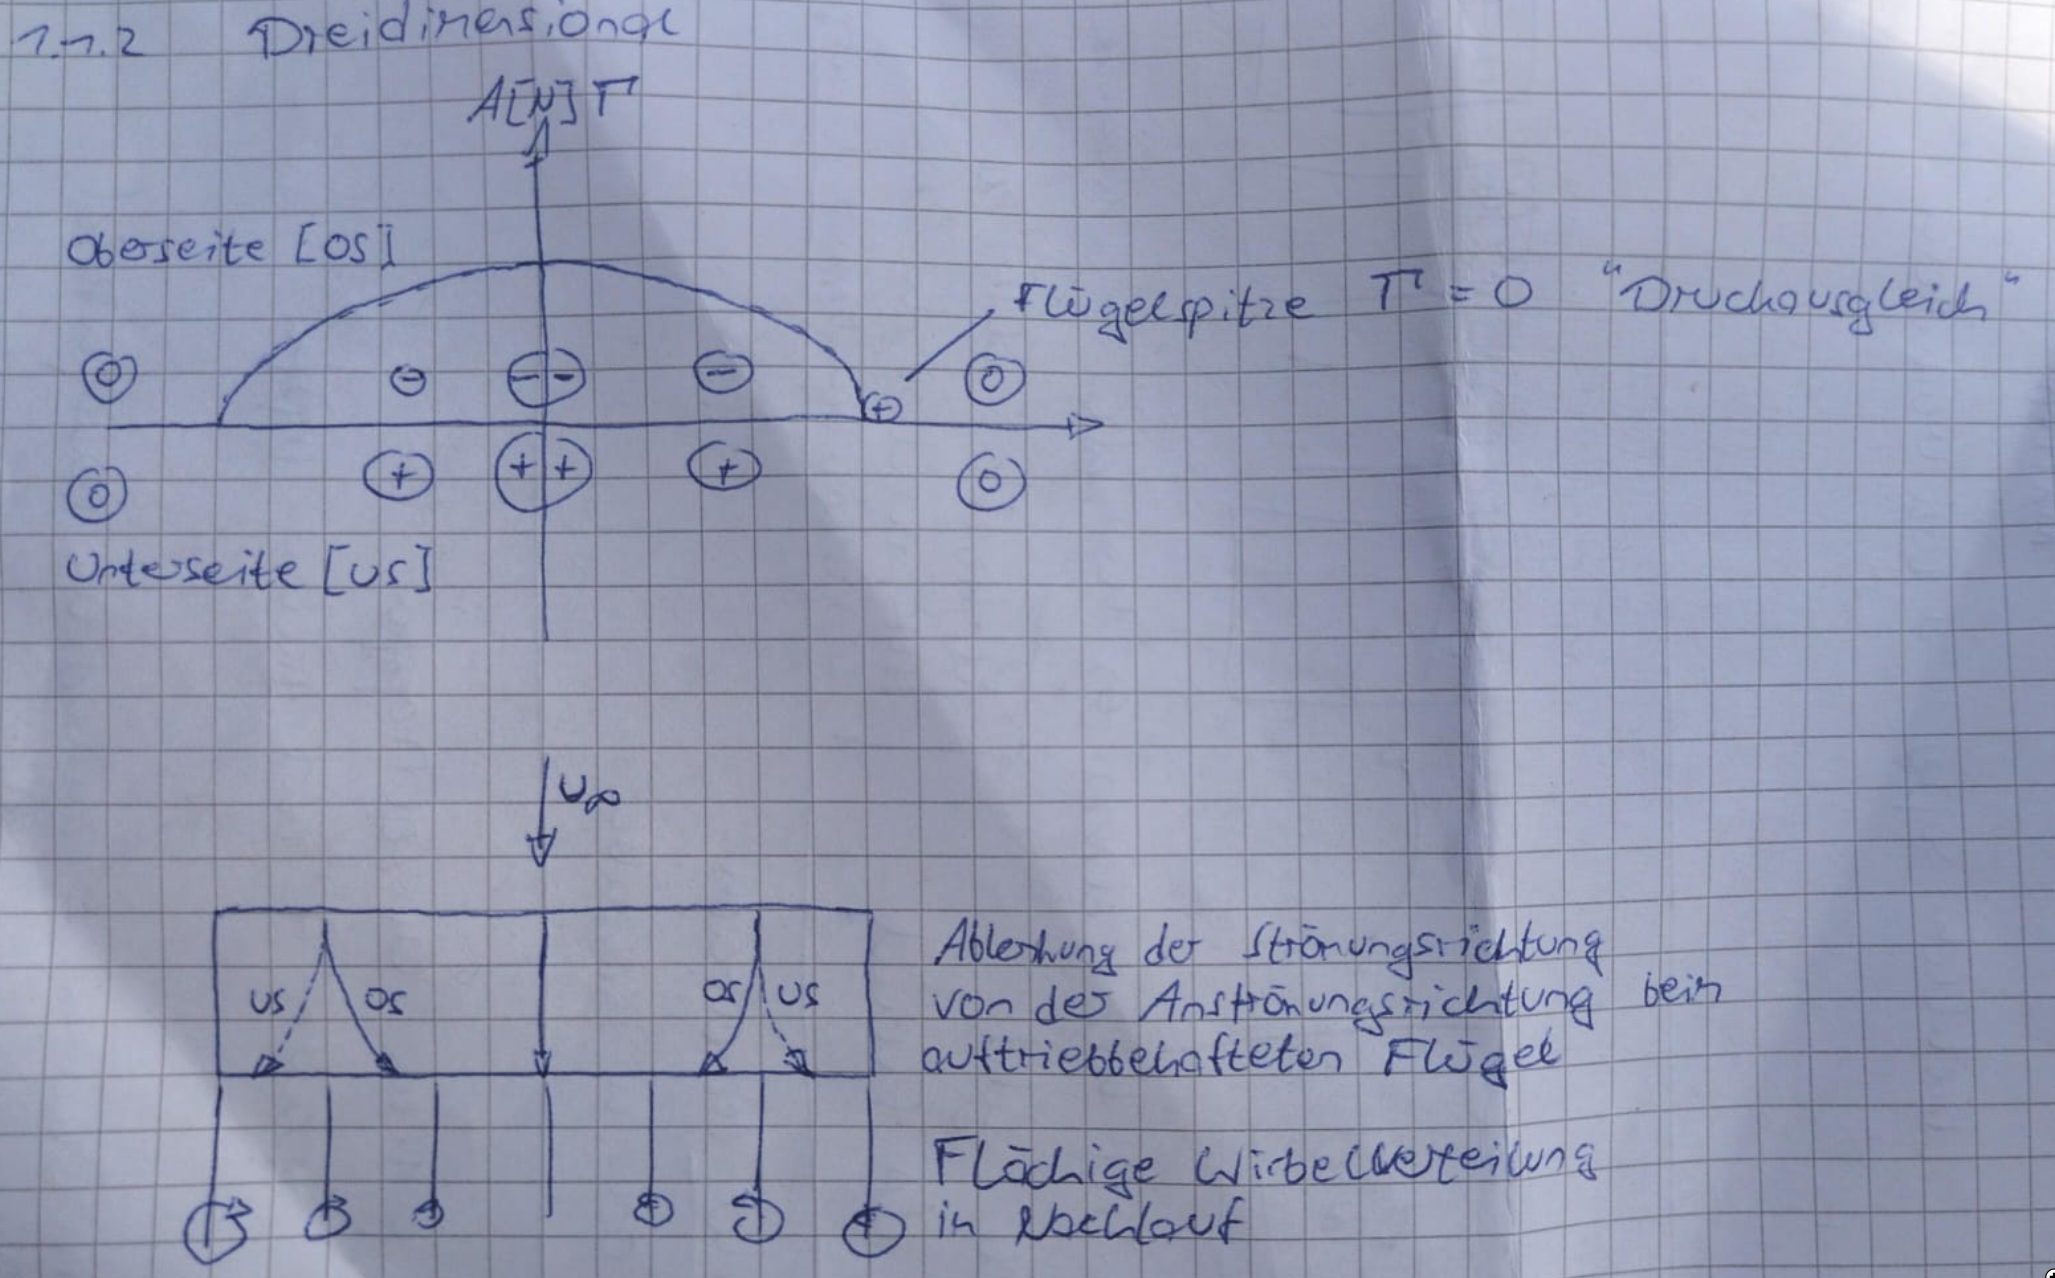 1.1.2 Dreidimensional
A[N] Γ
Oberseite [OS]
Flügelspitze Γ = 0 "Druckausgleich"
⊖ ⊖⊖ ⊖
0 - -- - + 0
0 + ++ + 0
Unterseite [US]
U∞
US OS OS US
Ablenkung der Strömungsrichtung
von der Anströmungsrichtung beim
auftriebbehafteten Flügel
Flächige Wirbelverteilung
in Nachlauf